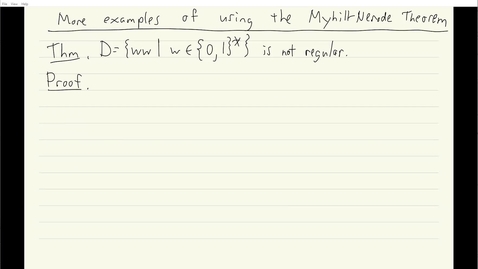 More examples of using the Myhill-Nerode Theorem
Thm. D={ww | w ∈ {0,1}*} is not regular.
Proof.